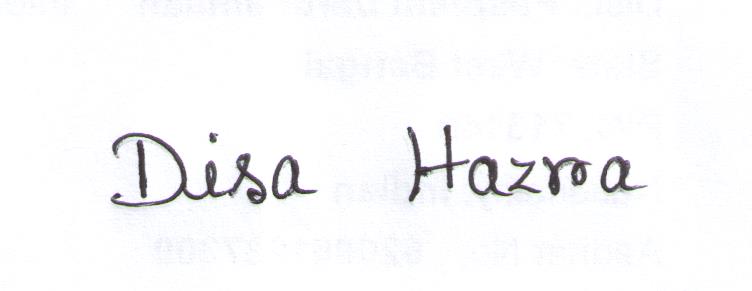 Disa Hazra